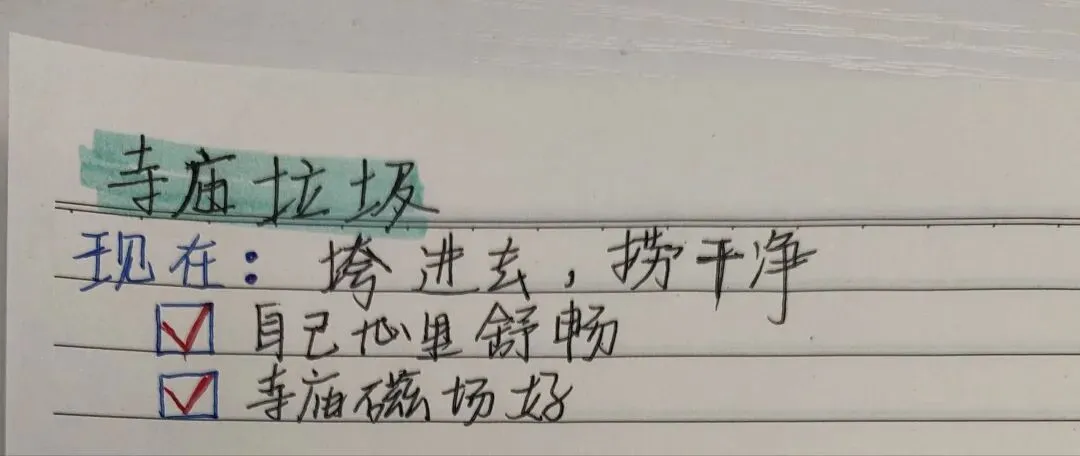 寺庙垃圾
现在：垮进去，捞干净
自己心里舒畅
寺庙磁场好